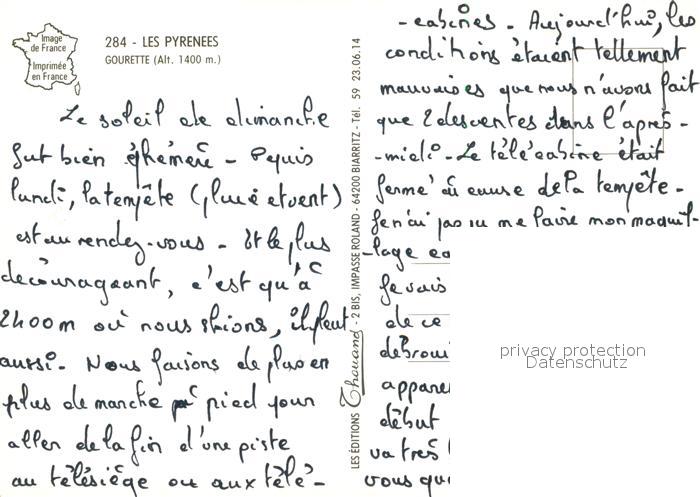 Image
de France
Imprimée
en France
284 - LES PYRENEES
GOURETTE (Alt. 1400 m.)
Le soleil de dimanche
fut bien éphémère - Depuis
lundi, la tempête (pluie et vent)
est au rendez-vous - Et le plus
décourageant, c'est qu'à
2400m où nous skions, il pleut
aussi. Nous faisons de plus en
plus de marche à pied pour
aller de la fin d'une piste
au télésiège ou aux télé-
LES ÉDITIONS Thouand - 2 BIS, IMPASSE ROLAND - 64200 BIARRITZ - Tél. 59 23.06.14
-cabines - Aujourd'hui, les
conditions étaient tellement
mauvaises que nous n'avons fait
que 2 descentes dans l'après-
-midi - Le télécabine était
fermé à cause de la tempête -
Je n'ai pas vu me faire mon maquil-
-lage
Je vais
de ce
débroui
apparei
début
va très
vous que
privacy protection
Datenschutz